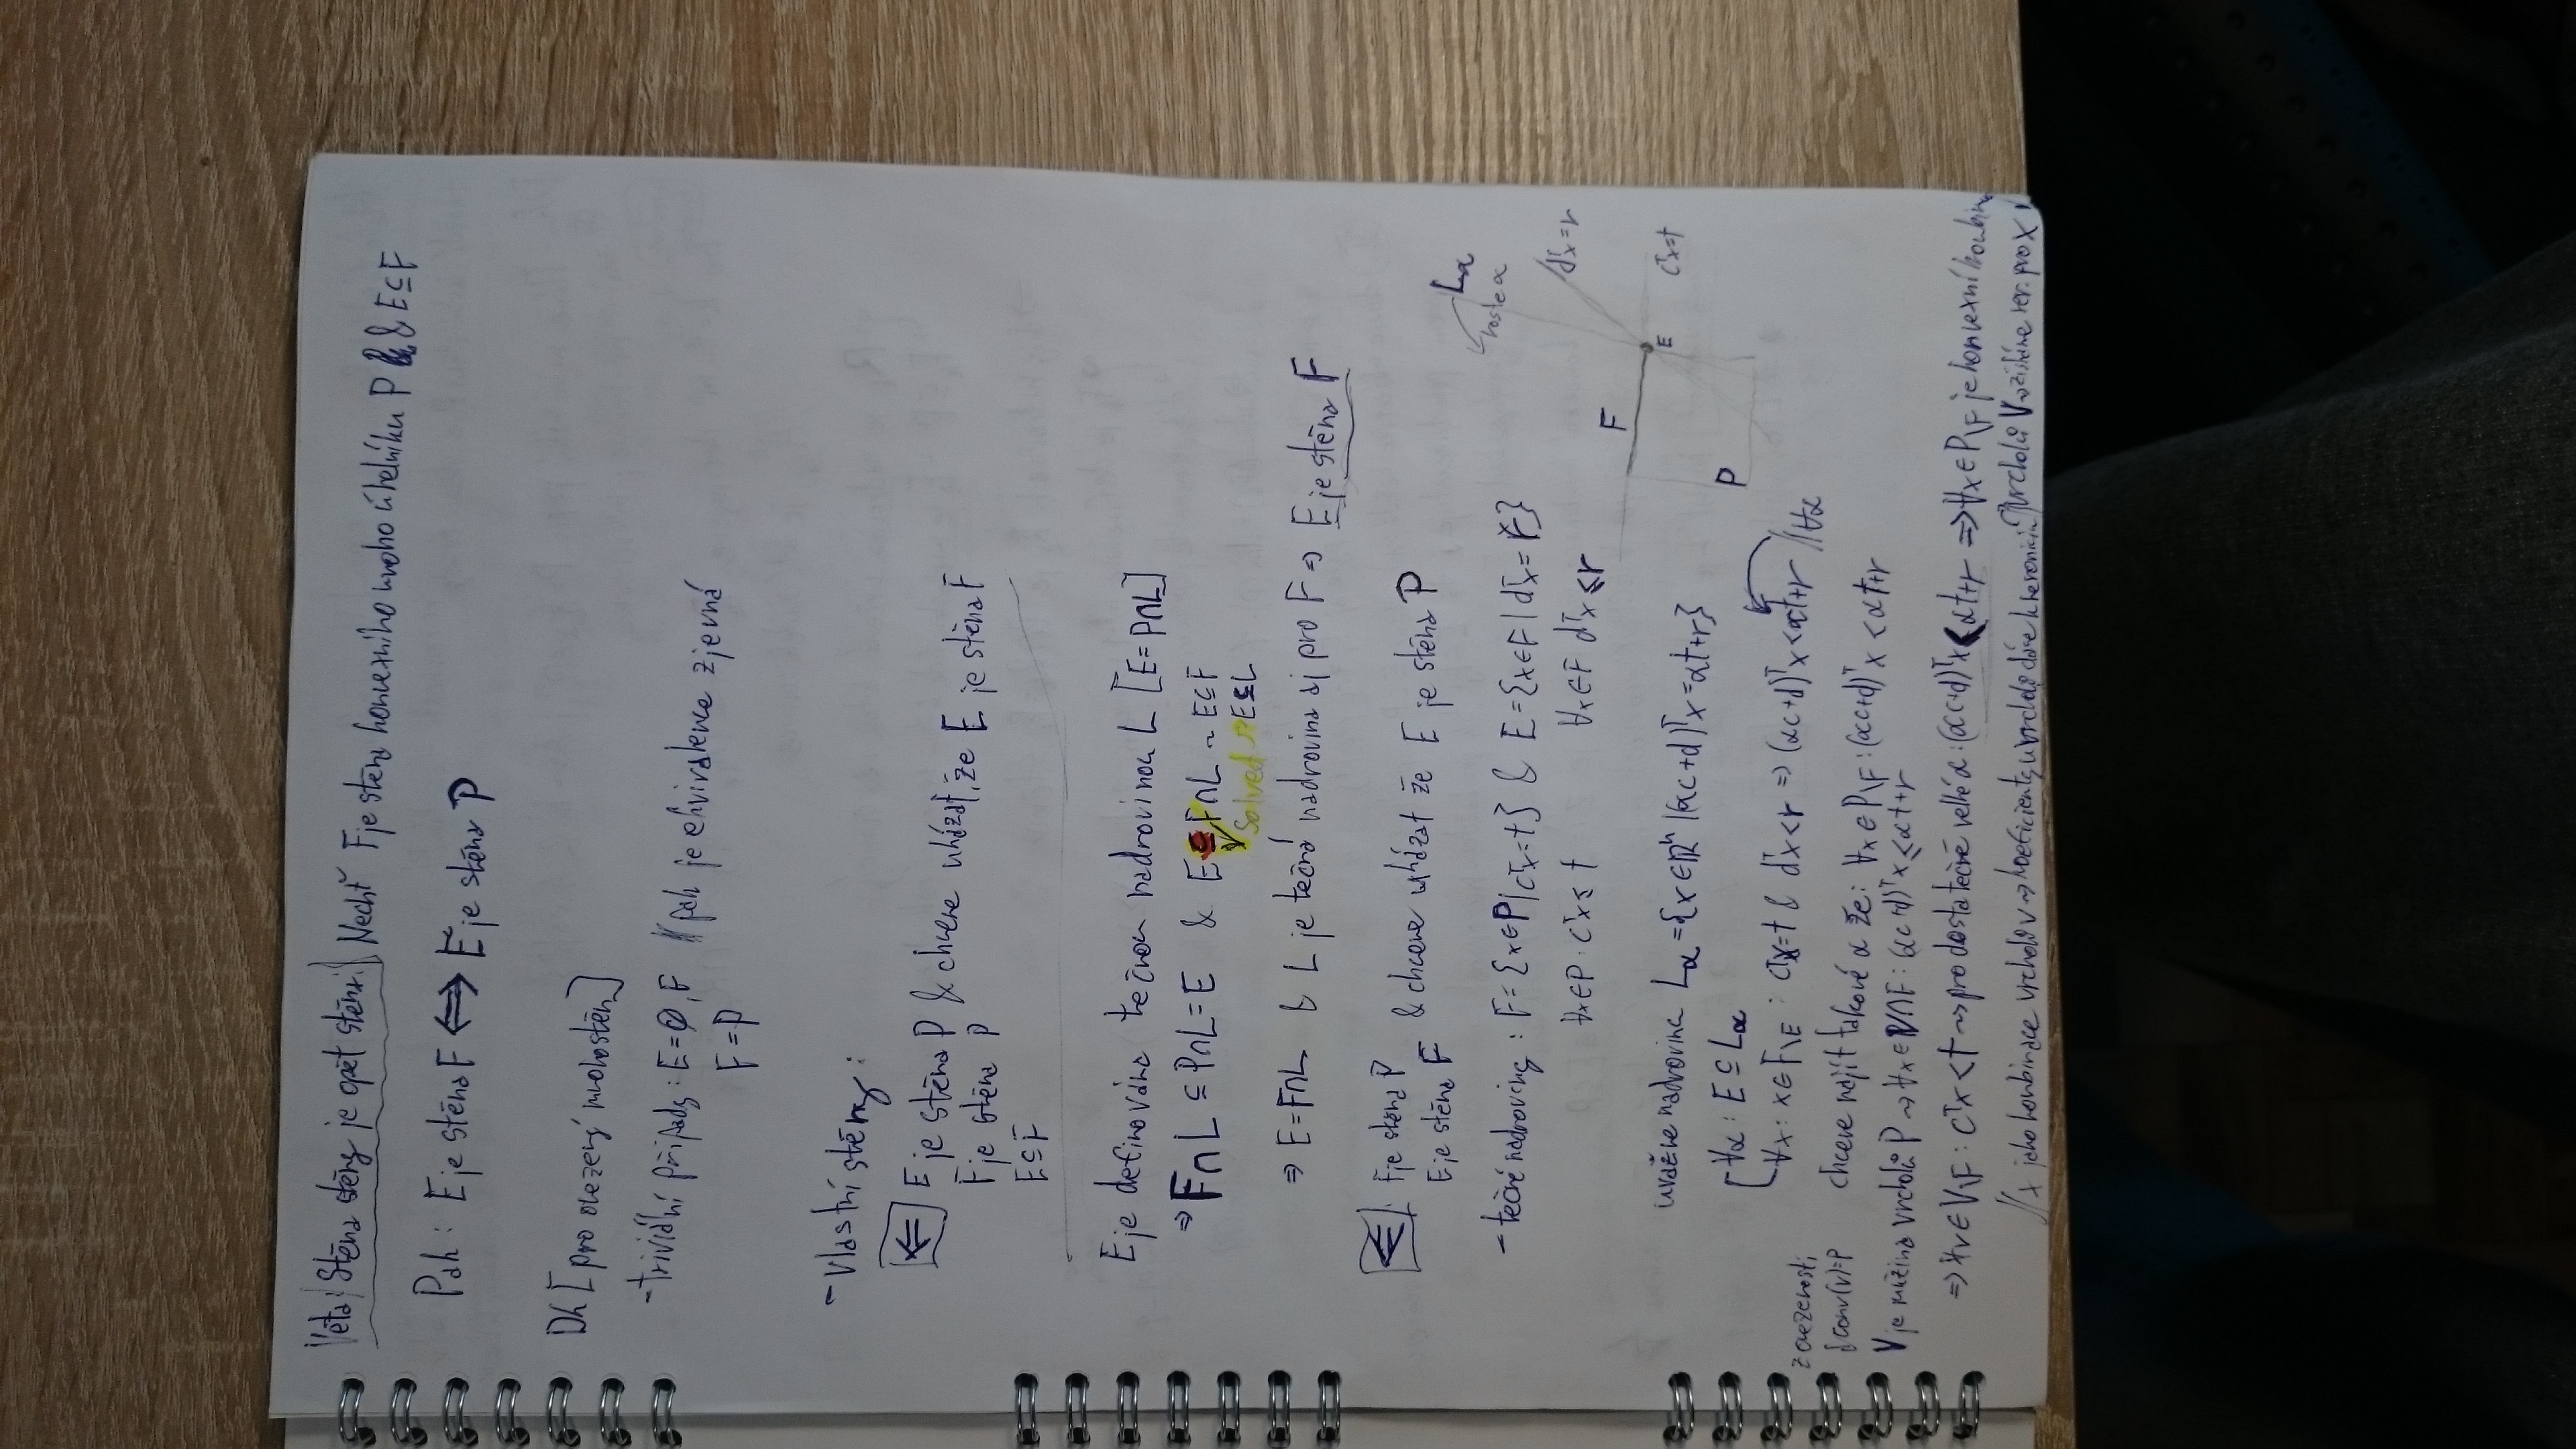 Věta| Stěna stěny je opět stěna| Nechť F je stěna konvexního mnoho úhelníku P & E⊆F
Pak: E je stěna F ⟺ E je stěna P
Dk [pro omezený mnohostěn]
- triviální případy: E=∅, F // pak je ekvivalence zjevná
F=P
- Vlastní stěny:
⇐ E je stěna P & chceme ukázat, že E je stěna F
F je stěna P
E⊆F
E je definována tečnou nadrovinou L [E=P∩L]
⇒ F∩L ⊆ P∩L = E & E⊆F∩L ~ E⊆F
Solved E⊆L
⇒ E=F∩L & L je tečná nadrovina i pro F ⇒ E je stěna F
F je stěna P & chceme ukázat že E je stěna P
E je stěna F
- tečné nadroviny: F={x∈P|cᵀx=t} & E={x∈F|dᵀx=r}
∀x∈P: cᵀx≤t ∀x∈F dᵀx≤r
Lα
roste α
dᵀx=r
cᵀx=t
F
E
P
uvažme nadrovinu Lα={x∈ℝⁿ|(αc+d)ᵀx=αt+r}
∀α: E⊆Lα
∀x: x∈F\E: cᵀx=t & dᵀx<r ⇒ (αc+d)ᵀx<αt+r //∀α
chceme najít takové α že: ∀x∈P\F: (αc+d)ᵀx<αt+r
z omezenosti
conv(V)=P
V je množina vrcholů P ~> ∀x∈V∩F: (αc+d)ᵀx≤αt+r
⇒ ∀v∈V\F: cᵀx<t ~> pro dostatečně velké α: (αc+d)ᵀx<αt+r ⇒ ∀x∈P\F je konvexní kombinací
// x jako kombinace vrcholů ~> koeficienty u vrcholů dáse k nerovnici vrcholů V ozížíme ner. pro x